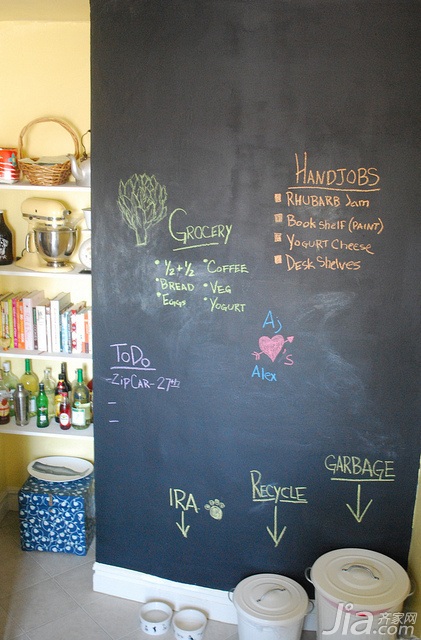 HANDJOBS
RHUBARB Jam
Bookshelf (PAINT)
YOGURT CHEESE
DESK SHELVES
GROCERY
½ + ½
BREAD
EGGS
COFFEE
VEG
YOGURT
ToDo
-ZIPCAR- 27th
AJ
♥'S
Alex
IRA
RECYCLE
GARBAGE
Jia.com
齐家网